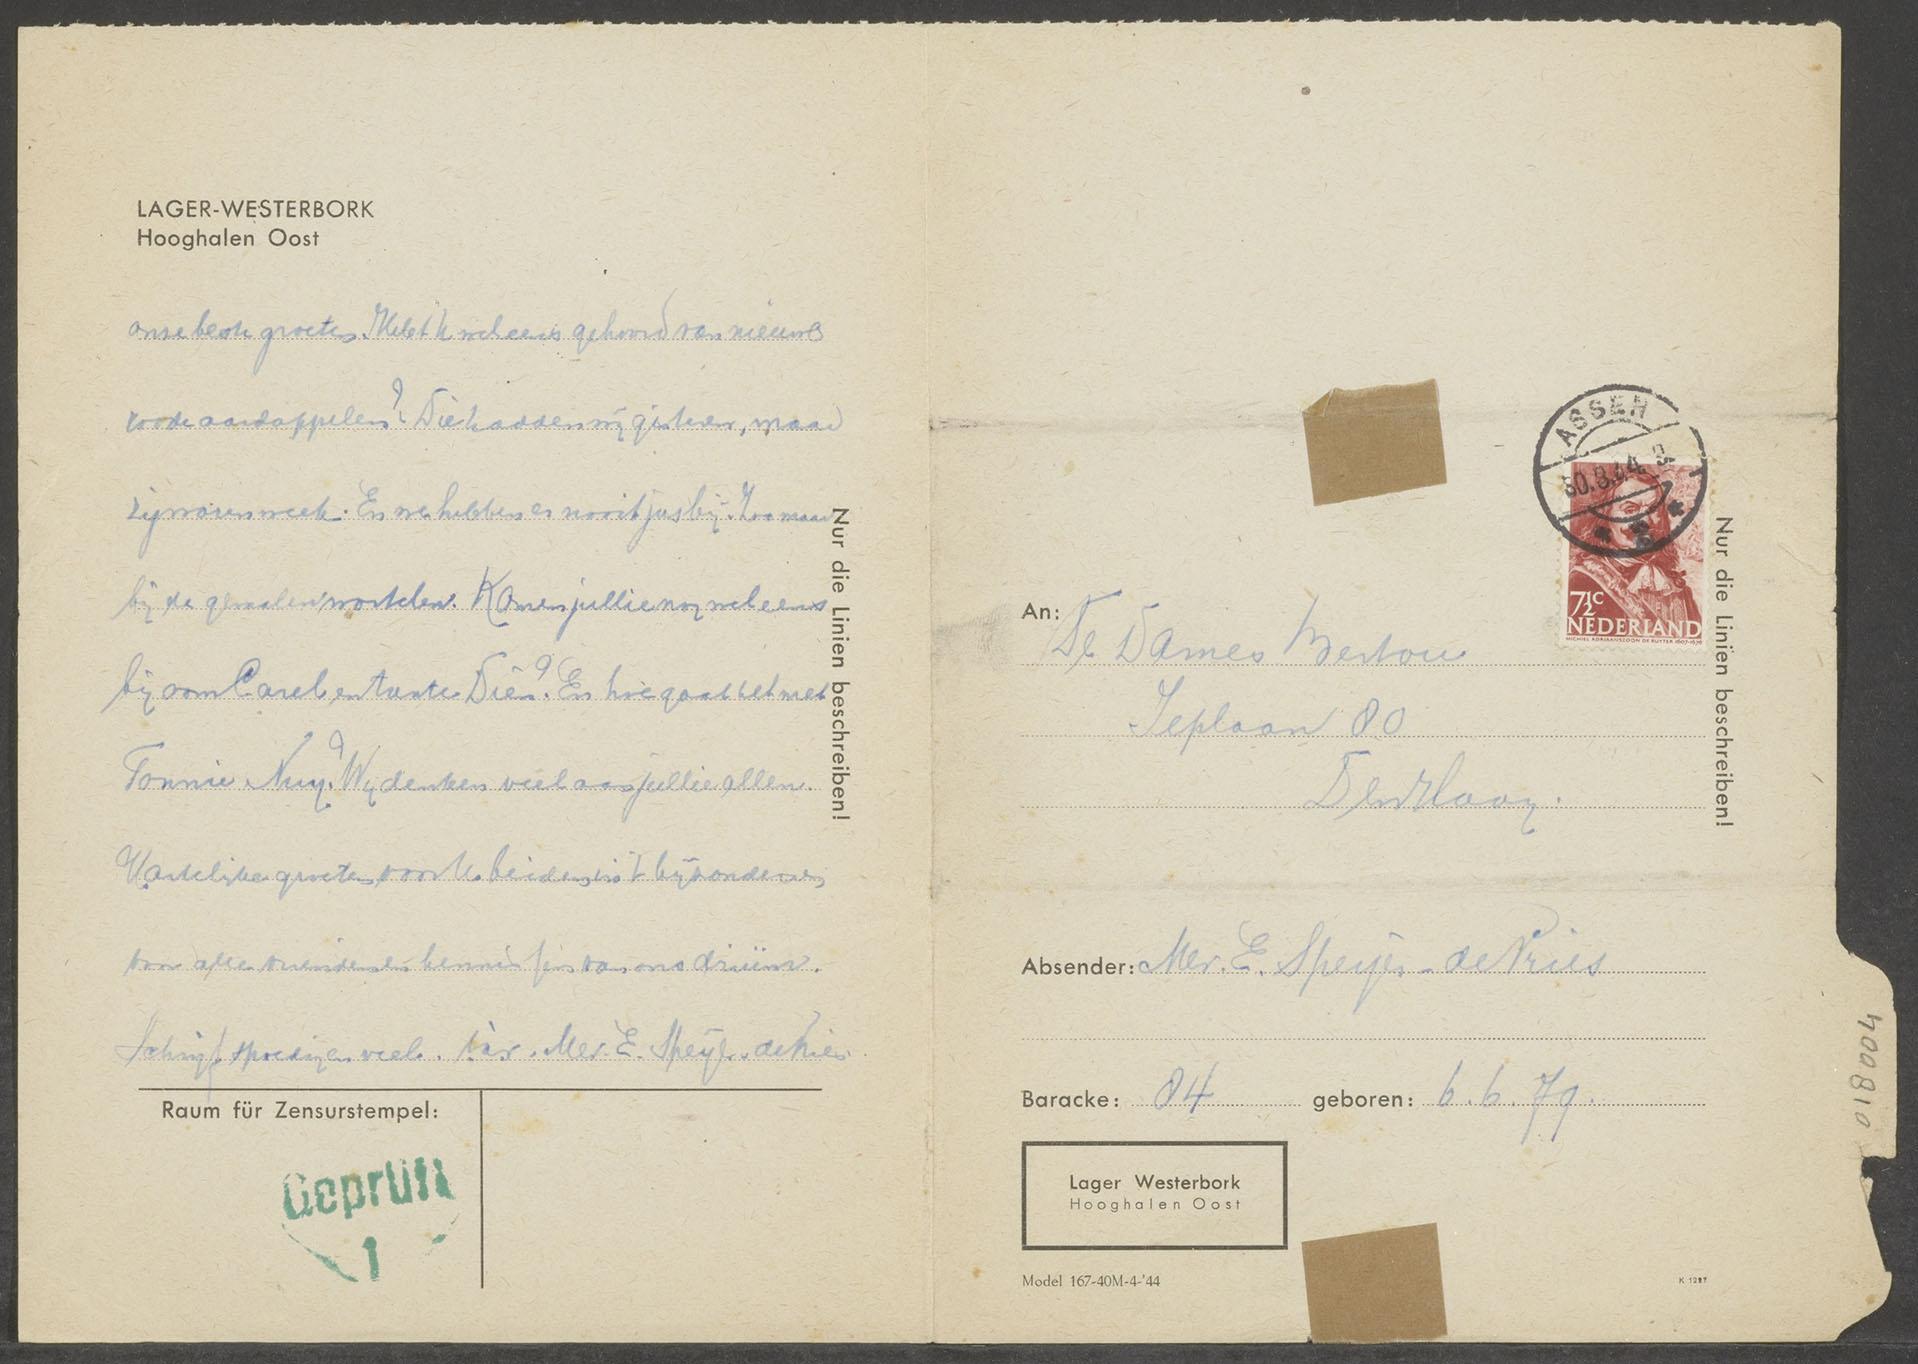 LAGER-WESTERBORK
Hooghalen Oost
onze beste groeten. Hebt U wel eens gehoord van nieuwe
roode aardappelen? Die hadden wij gisteren, maar
zij waren week. En we hebben er nooit jus bij. Zoo maar
bij de gemalen wortelen. Komen jullie nog wel eens
bij oom Carel en tante Dien? En hoe gaat het met
Tonnie Nuy? Wij denken veel aan jullie allen.
Hartelijke groeten voor U beiden in 't bijzonder en
voor alle vrienden en kennissen van ons drieën.
Schrijf spoedig en veel. Mev. E. Speijer-de Vries
Nur die Linien beschreiben!
Raum für Zensurstempel:
Geprüft
1
ASSEN
30.8.44
7½c
NEDERLAND
MICHIEL ADRIAANSZOON DE RUYTER 1607-1676
Nur die Linien beschreiben!
An: De Dames
80
Den Haag.
Absender: Mev. E. Speijer-de Vries
Baracke: 84 geboren: 6.6.79.
Lager Westerbork
Hooghalen Oost
Model 167-40M-4-'44
K 1287
400810